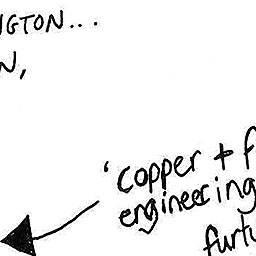 NGTON...
N,
'copper + f
engineering
furt